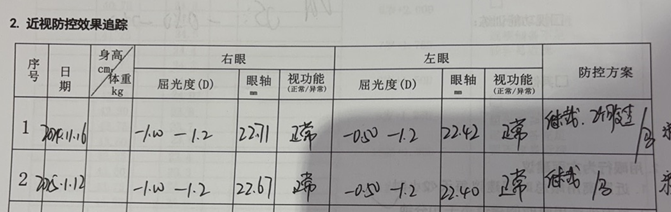 2. 近视防控效果追踪
序号 日期 身高cm 体重kg 右眼 左眼 防控方案
屈光度(D) 眼轴mm 视功能(正常/异常) 屈光度(D) 眼轴mm 视功能(正常/异常)
1 11.16 -1.00 -1.2 22.71 正常 -0.50 -1.2 22.42 正常
2 2025.1.12 -1.00 -1.2 22.67 正常 -0.50 -1.2 22.40 正常